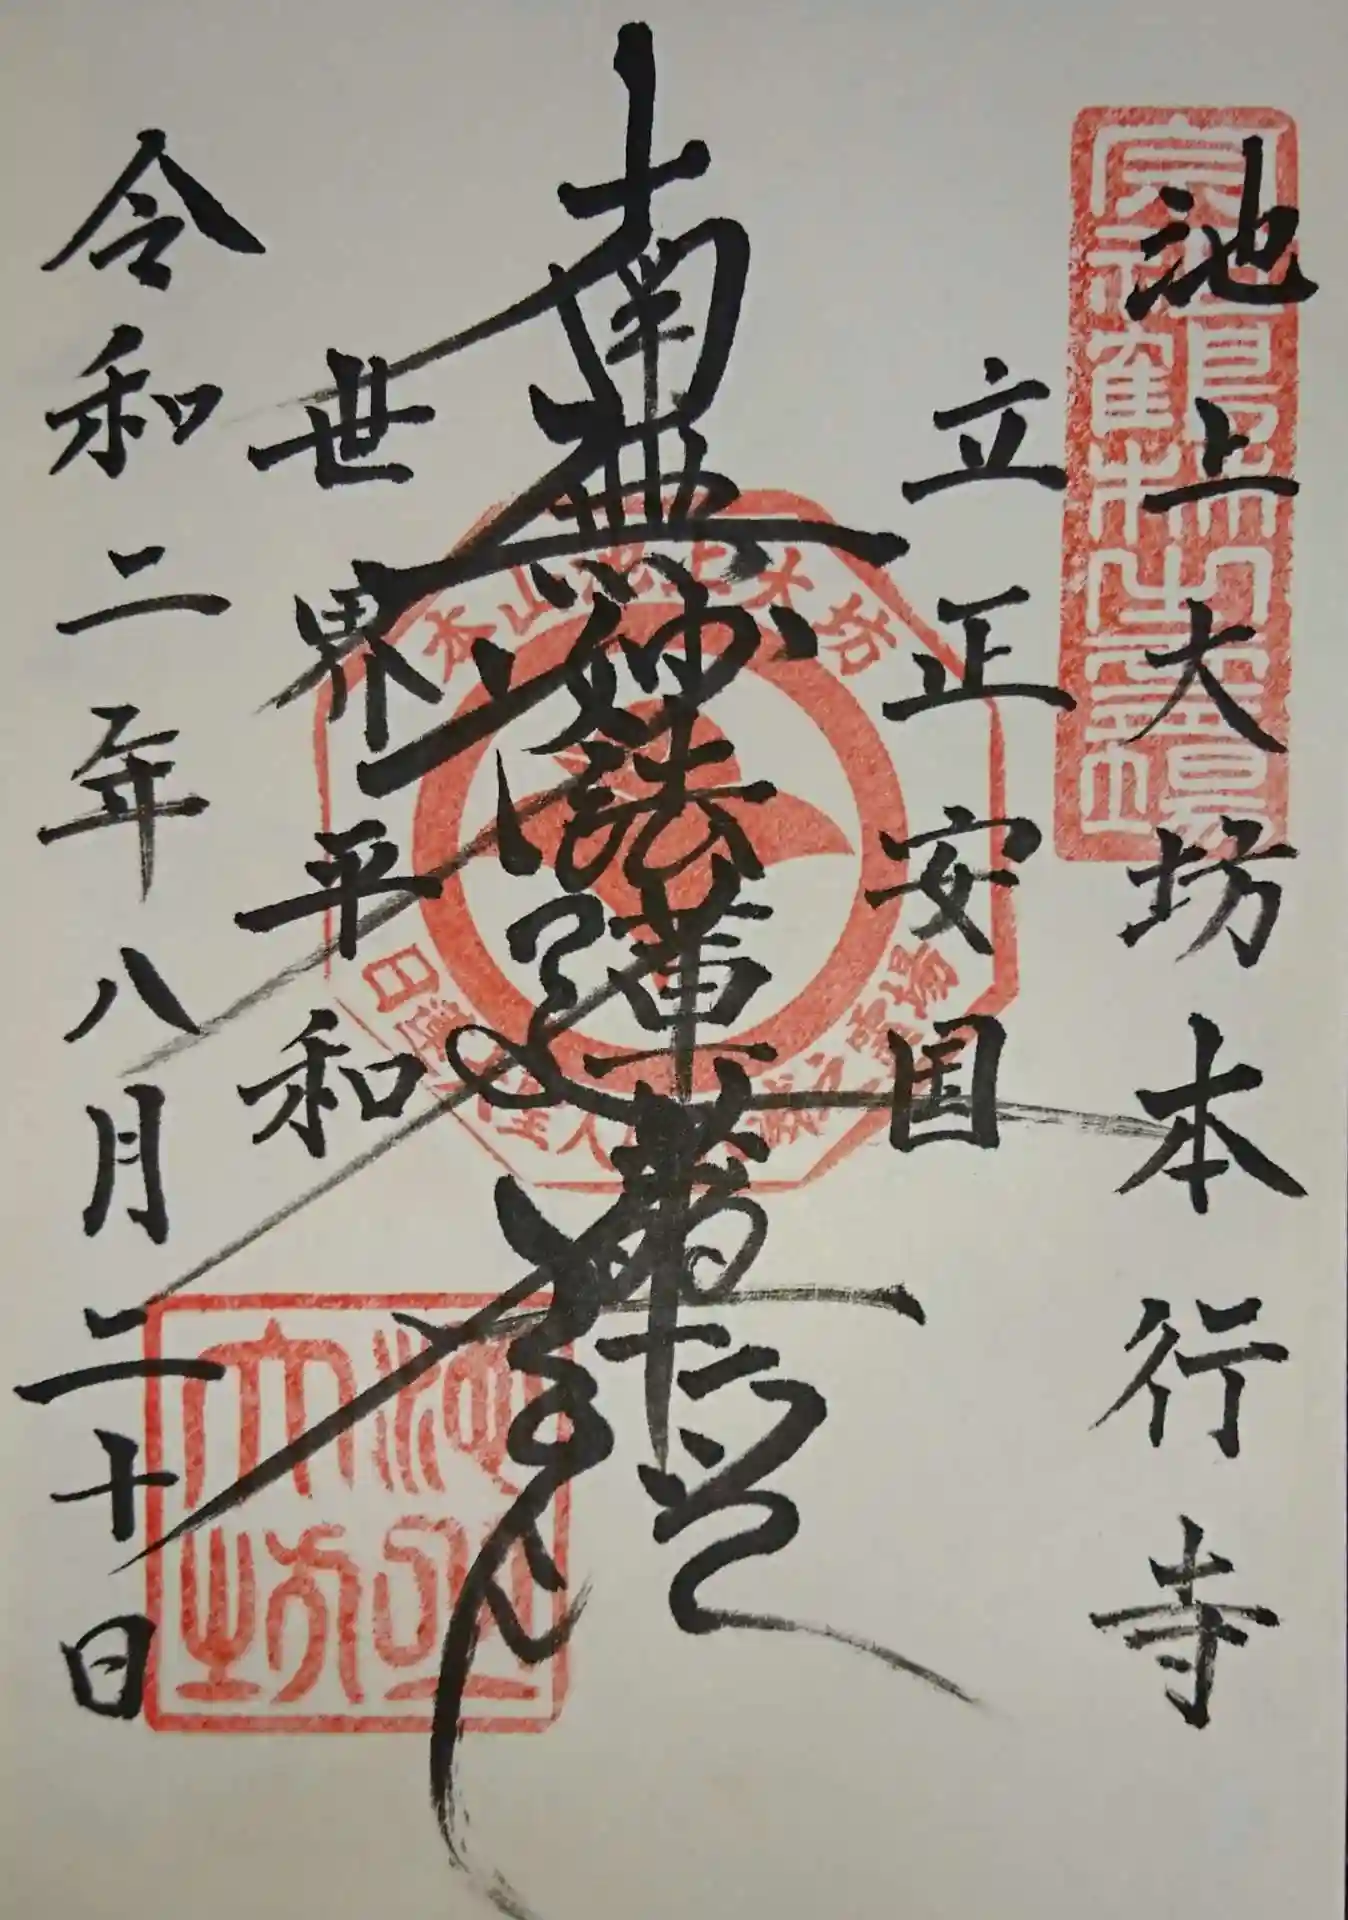 池上大坊本行寺
立正安国
南無妙法蓮華経
世界平和
令和二年八月二十日
本山池上大坊
池上大坊